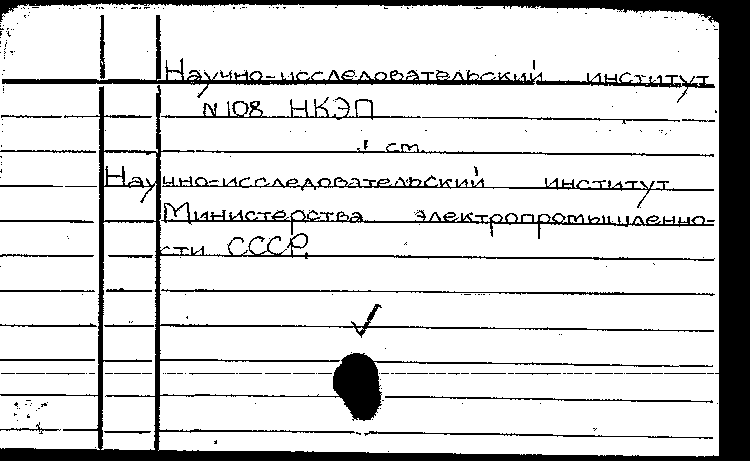 Научно-исследовательский институт
N 108 НКЭП
см.
Научно-исследовательский институт
Министерства электропромышленно-
сти СССР.